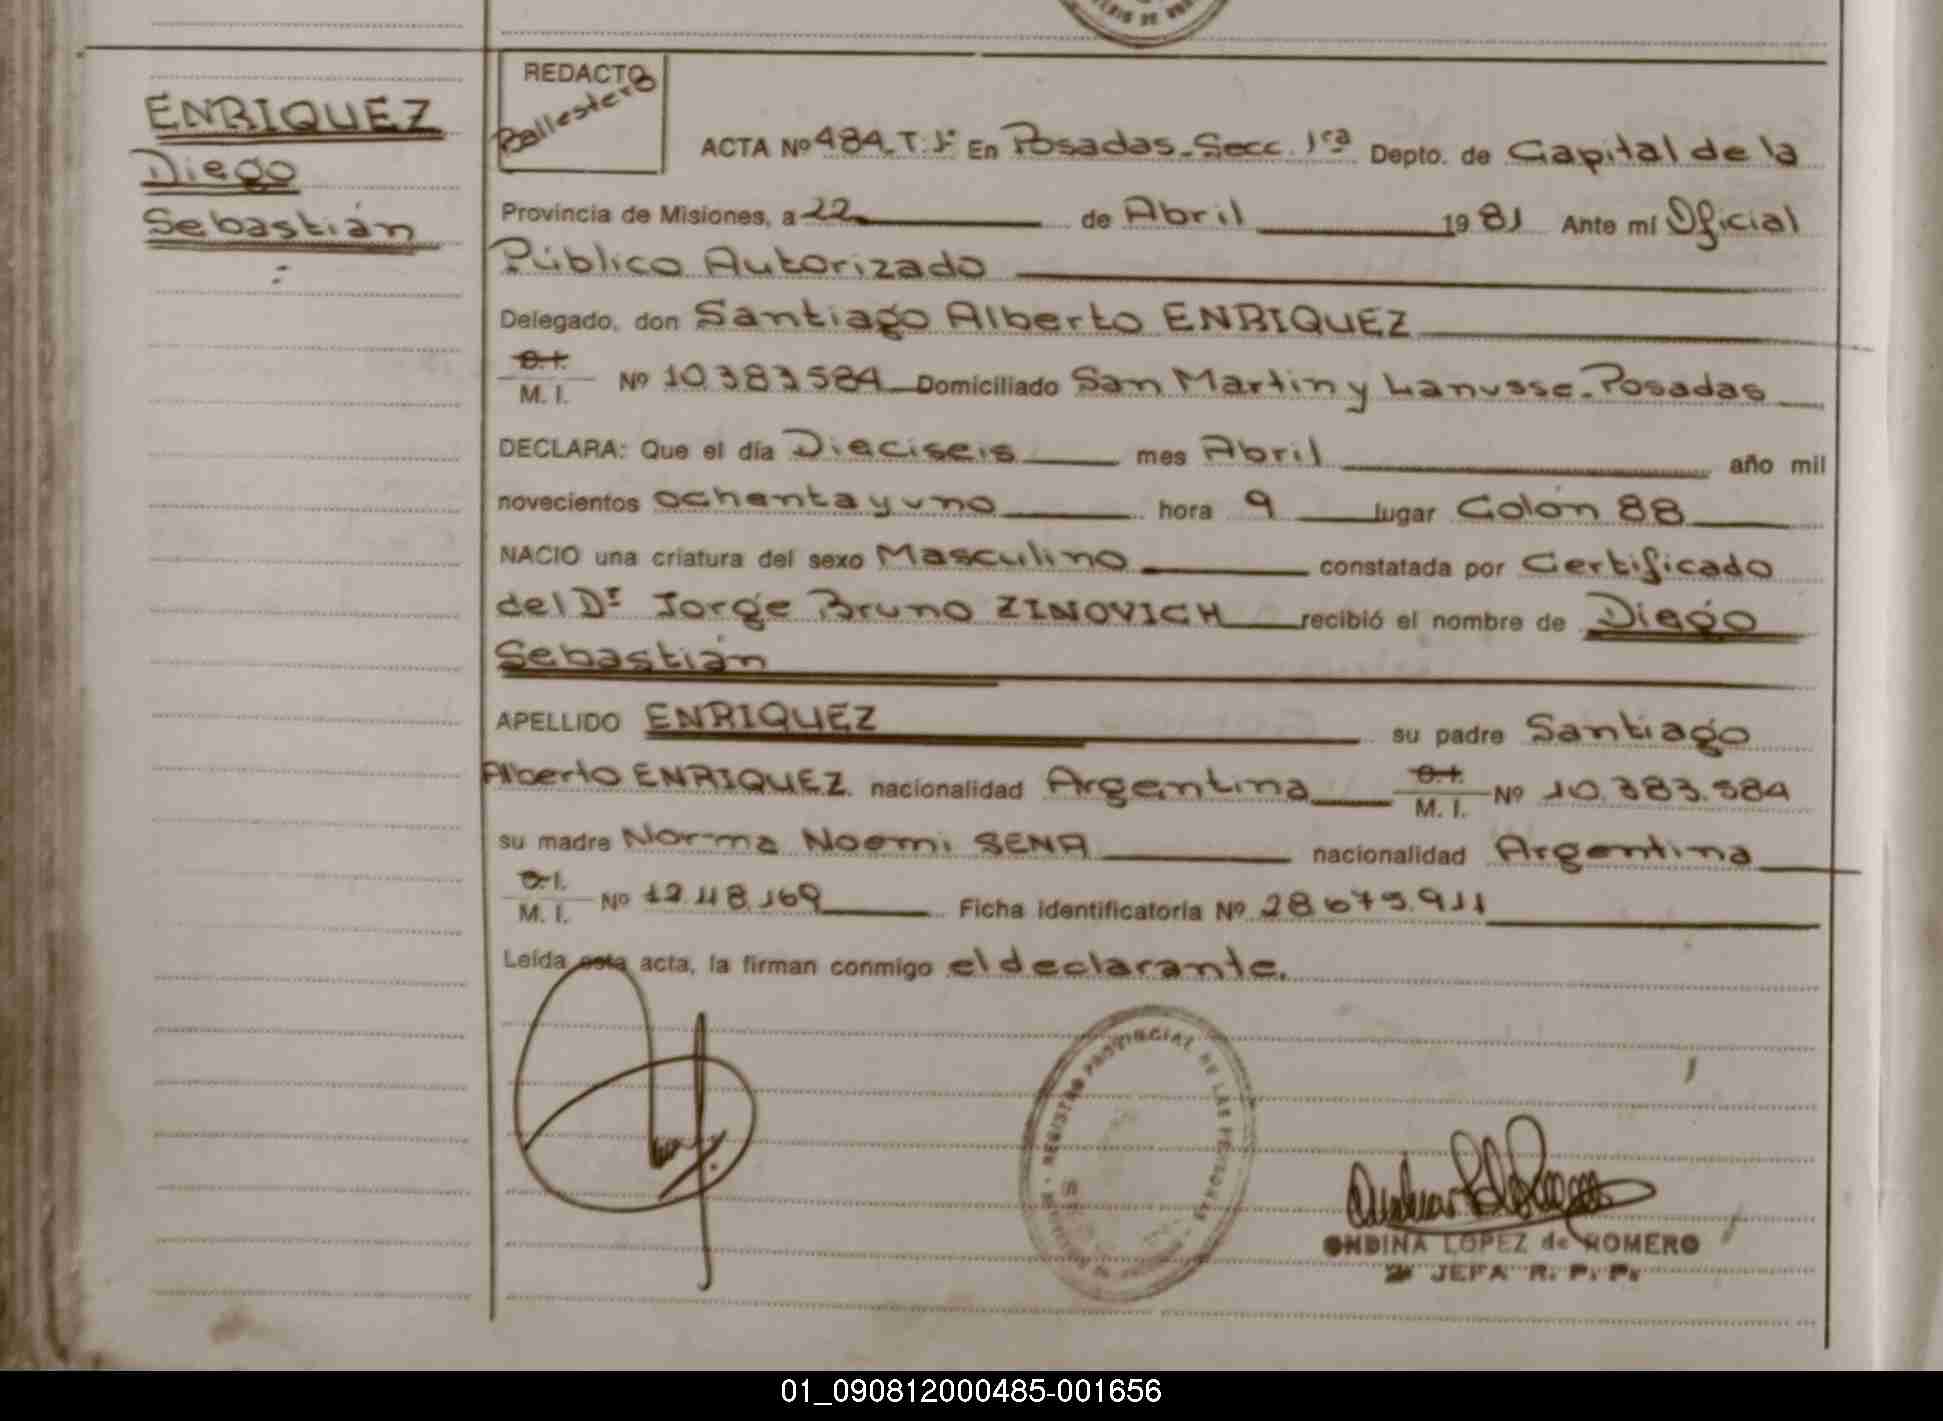 ENRIQUEZ
Diego
Sebastián
REDACTO
Ballestero
ACTA Nº 484_T.1º En Posadas_Secc. 1ra Depto. de Capital de la
Provincia de Misiones, a 22 de Abril 1981 Ante mí Oficial
Público Autorizado
Delegado, don Santiago Alberto ENRIQUEZ
C.I.
M. I. Nº 10.383.584 Domiciliado San Martin y Lanusse_Posadas
DECLARA: Que el día Dieciseis mes Abril año mil
novecientos ochenta y uno hora 9 lugar Colón 88
NACIO una criatura del sexo Masculino constatada por Certificado
del Dr Jorge Bruno ZINOVICH recibió el nombre de Diego
Sebastián
APELLIDO ENRIQUEZ su padre Santiago
Alberto ENRIQUEZ. nacionalidad Argentina C.I. M. I. Nº 10.383.584
su madre Norma Noemi SENA nacionalidad Argentina
C.I.
M. I. Nº Ficha identificatoria Nº 28.675.911
Leída esta acta, la firman conmigo el declarante.
REGISTRO PROVINCIAL DE LAS PERSONAS
ONDINA LOPEZ de ROMERO
JEFA R. P. P.
01_090812000485-001656